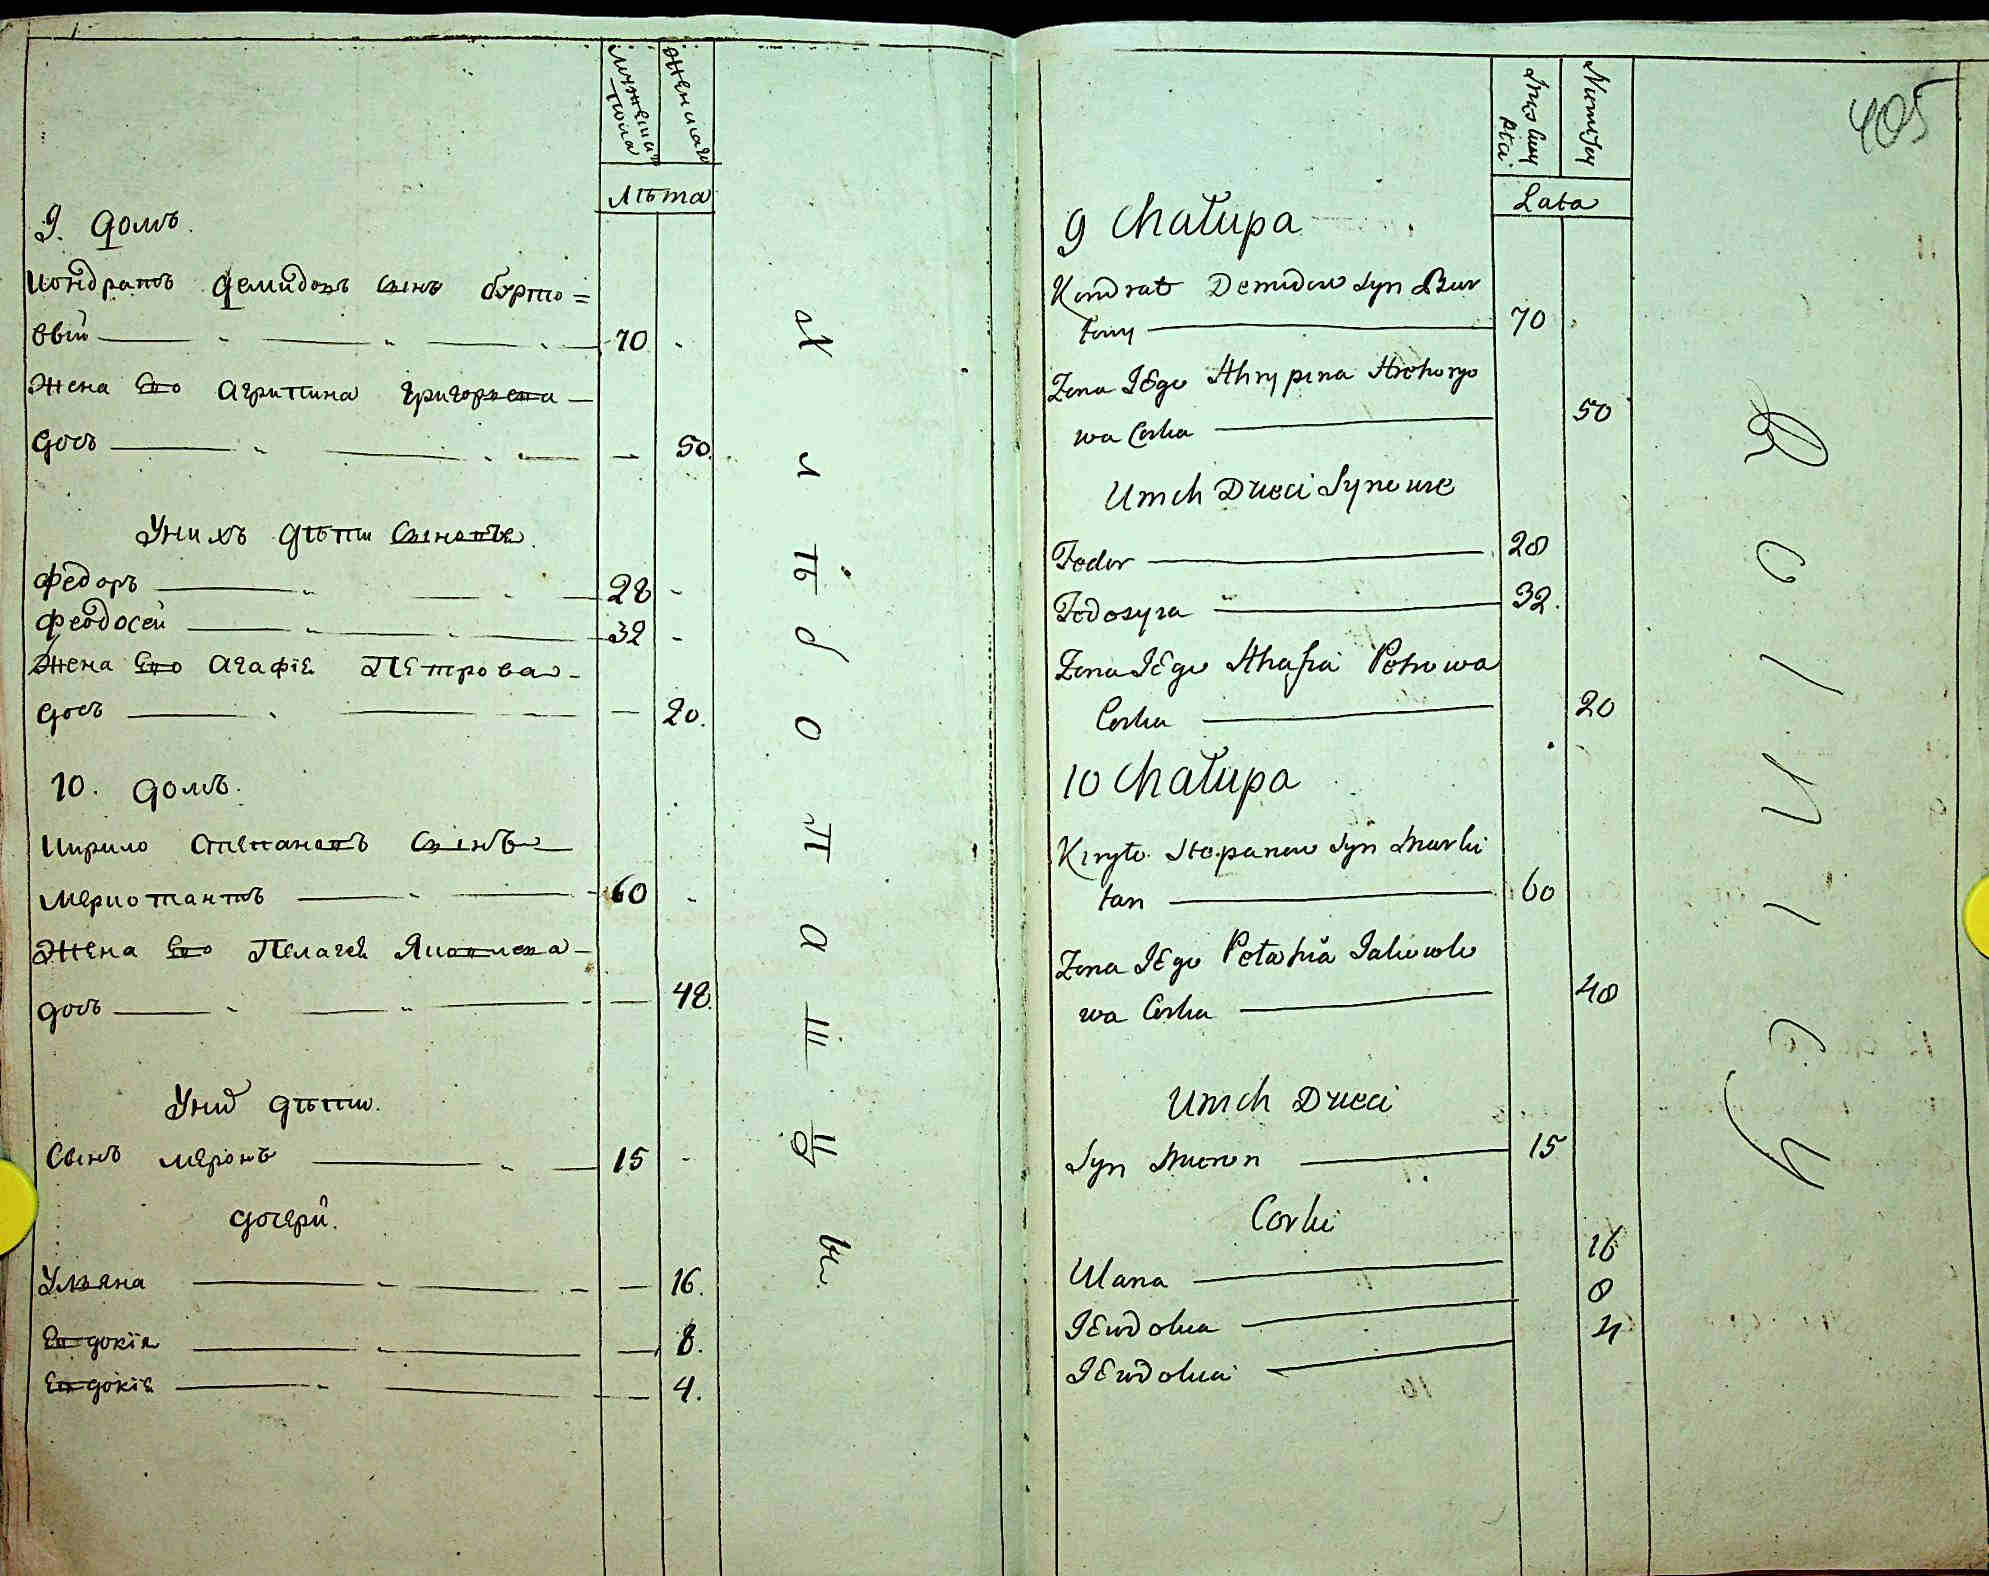 Мужеска пола
Женскаго
Лѣта
9. домъ.
Кондратъ Демидовъ сынъ бурто=
вый 70
Жена Его Агрипина Григорьева
дочь 50.
У нихъ дѣти сыновье.
Федоръ 28
Феодосей 32
Жена Его Агафiя Петрова
дочь 20.
10. домъ.
Кирило Степановъ Сынъ
Меркотантъ 60
Жена Его Пелагея Яковлева
дочь 48.
У них дѣти.
Сынъ Меронъ 15
дочери.
Ульяна 16.
Евдокiя 8.
Евдокiя 4.
Хлѣбопашцы.
405
Męskiey Płci
Niewiściey
Lata
9 Chałupa
Kondrat Demidow Syn Bur
towy 70
Zona IEgo Ahrypina Hrehoryo
wa Corka 50
U nich Dzieci Synowie
Fedor 28
Fedosyia 32.
Zona IEgo Ahafia Petrowa
Corka 20
10 Chałupa
Kiryło Stepanow Syn Marko
tan 60
Zona IEgo Pełahia Jakowle
wa Corka 48
U nich Dzieci
Syn Miron 15
Corki
Ulana 16
IEwdokia 8
IEwdokia 4
Rolnicy